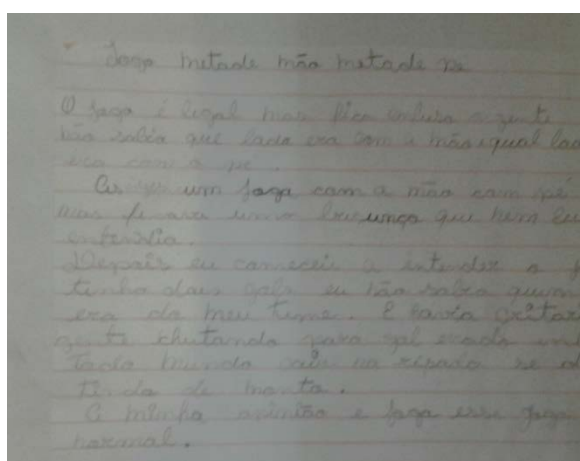 Jogo metade mão metade pé
O jogo é legal mas fica confuso a gente
não sabia que lado era com a mão e qual lad
era com o pé.
um jogo com a mão com pé
mas ficava uma que nem eu
entendia.
Depois eu comecei a entender o
tinha dois gols eu não sabia quem
era do meu time. E havia gritar
gente chutando para gol errado
Todo mundo caiu na se
de monta.
A minha opinião e joga esse jogo
normal.